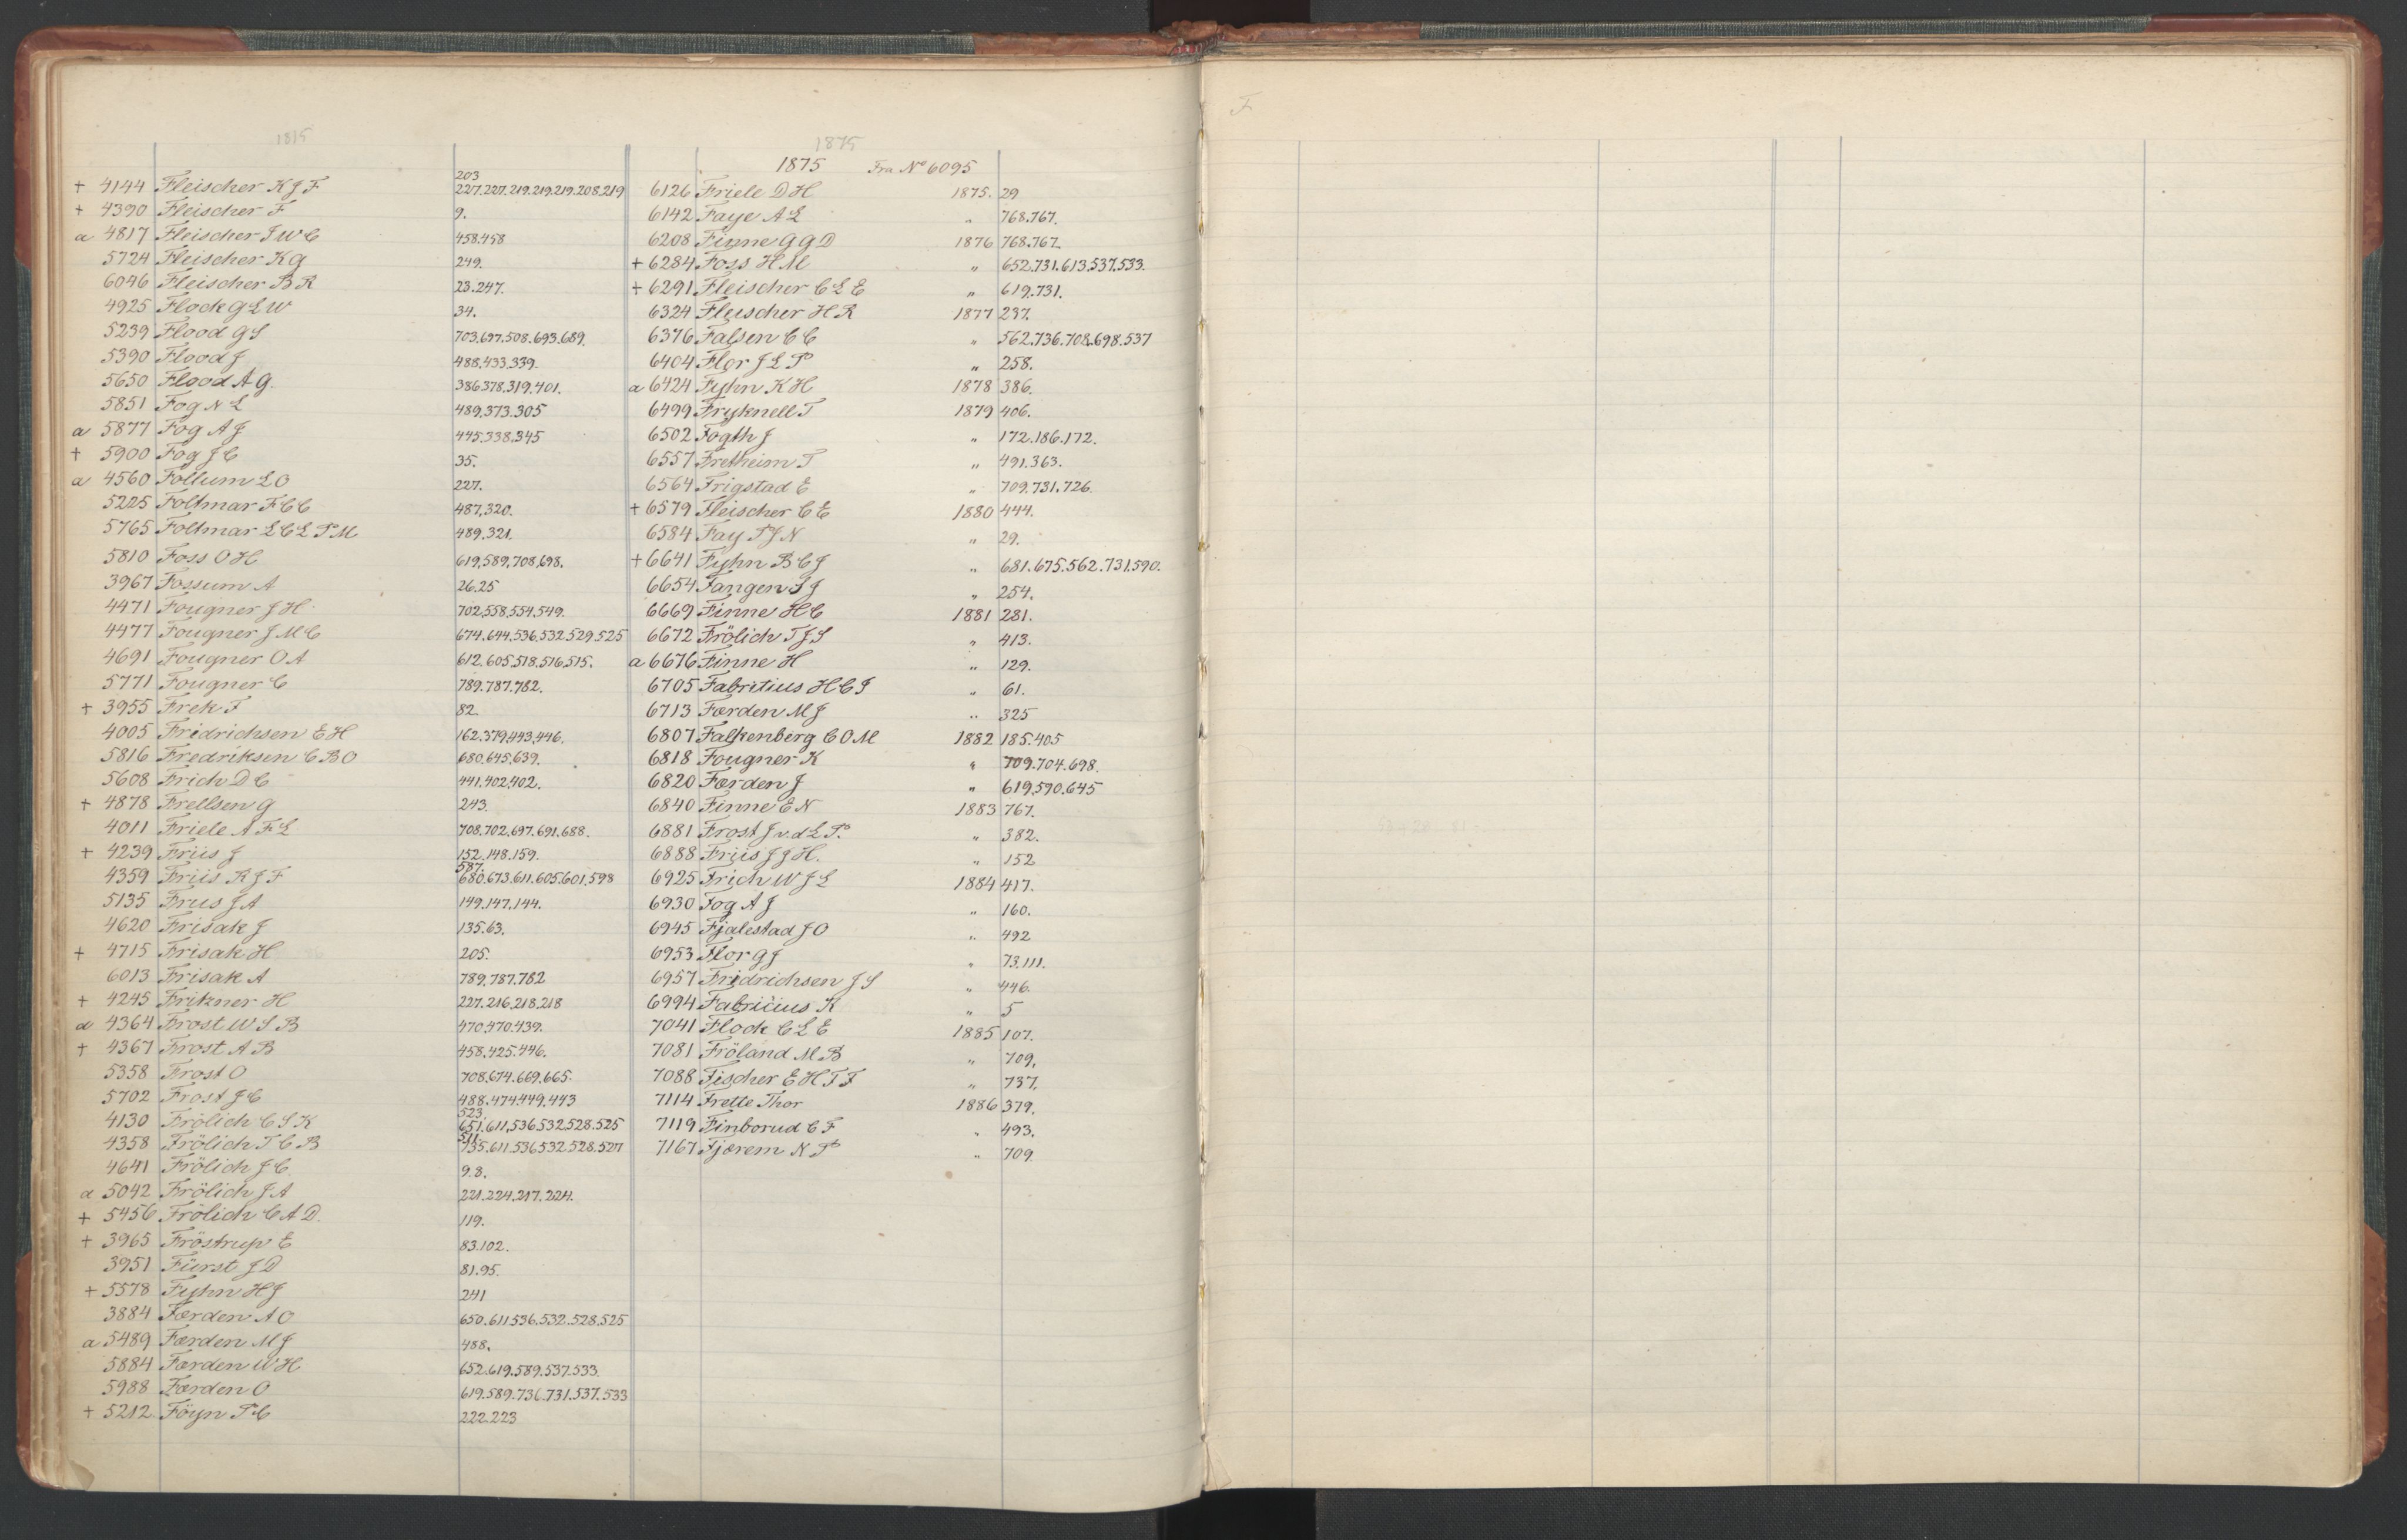 1815
+ 4144 Fleischer K J F 203 227.227.219.219.219.208.219
+ 4390 Fleischer F 9.
a 4817 Fleischer J W C 458.458
5724 Fleischer K G 249.
6046 Fleischer B R 23.247.
4925 Flock G L W 34.
5239 Flood G S 703.697.508.693.689.
5390 Flood J 488.433.339.
5650 Flood A G. 386.378.319.401.
5851 Fog N L 489.373.305
a 5877 Fog A J 445.338.345
+ 5900 Fog J C 35.
a 4560 Follum L O 227.
5225 Foltmar F C C 487.320.
5765 Foltmar L C L P M 489.321.
5810 Foss O H 619.589.708.698.
3967 Fossum A 26.25
4471 Fougner J H 702.558.554.549.
4477 Fougner J M C 674.644.536.532.529.525
4691 Fougner O A 612.605.518.516.515.
5771 Fougner C 789.787.782.
+ 3955 Frek F 82
4005 Fridrichsen E H 162.379.443.446.
5816 Fredriksen C B O 680.645.639.
5608 Frich D C 441.402.402.
+ 4878 Frellsen G 243.
4011 Friele A F L 708.702.697.691.688.
+ 4239 Friis J 152.148.159.
4359 Friis K J F 587. 680.673.611.605.601.598
5135 Friis J A 149.147.144.
4620 Frisak J 135.63.
+ 4715 Frisak H 205.
6013 Frisak A 789.787.782
+ 4245 Frikner H 227.216.218.218
a 4364 Frost W S B 470.470.439.
+ 4367 Frost A B 458.425.446.
5358 Frost O 708.674.669.665.
5702 Frost J C 488.474.449.443
4130 Frölich C S K 523. 651.611.536.532.528.525
4358 Frölich T C B 511. 735.611.536.532.528.527
4641 Frölich J C. 9.8.
a 5042 Frölich J A 221.224.217.224.
+ 5456 Frölich C A D. 119.
+ 3965 Fröstrup E 83.102.
3951 Fürst J D 81.95.
+ 5578 Fyhn H J 241
3884 Færden A O 650.611.536.532.528.525
a 5489 Færden M J 488.
5884 Færden W H 652.619.589.537.533.
5988 Færden O 619.589.736.731.537.533
+ 5212 Föyn P C 222.223
1875
1875 Fra No 6095
6126 Friele D H 1875. 29
6142 Faye A L " 768.767.
6208 Finne G G D 1876 768.767.
+ 6284 Foss H M " 652.731.613.537.533.
+ 6291 Fleischer C L E " 619.731.
6324 Fleischer H R 1877 237.
6376 Falsen C C " 562.736.708.698.537
6404 Flor J L P " 258.
a 6424 Fyhn K H 1878 386.
6499 Fryknell T 1879 406.
6502 Fogth J " 172.186.172.
6557 Fretheim T " 491.363.
6564 Frigstad E " 709.731.726.
+ 6579 Fleischer C E 1880 444.
6584 Fay P J N " 29.
+ 6641 Fyhn B C J " 681.675.562.731.590.
6654 Fangen S J " 254.
6669 Finne H C 1881 281.
6672 Frölich T J S " 413.
a 6676 Finne H " 129.
6705 Fabritius H C J " 61.
6713 Færden M J " 325
6807 Falkenberg C O M 1882 185.405
6818 Fougner K " 709.704.698.
6820 Færden J " 619.590.645
6840 Finne E N 1883 767.
6881 Frost J v. d L P. " 382.
6888 Friis J J H. " 152
6925 Frich W J L 1884 417.
6930 Fog A J " 160.
6945 Fjalestad J O " 492
6953 Flor G J " 73.111.
6957 Fridrichsen J S " 446.
6994 Fabricius K " 5
7041 Flock C L E 1885 107.
7081 Fröland M B " 709.
7088 Fischer E H T F " 737.
7114 Frette Thor 1886 379.
7119 Finborud C F " 493.
7167 Fjærem N P " 709.
F